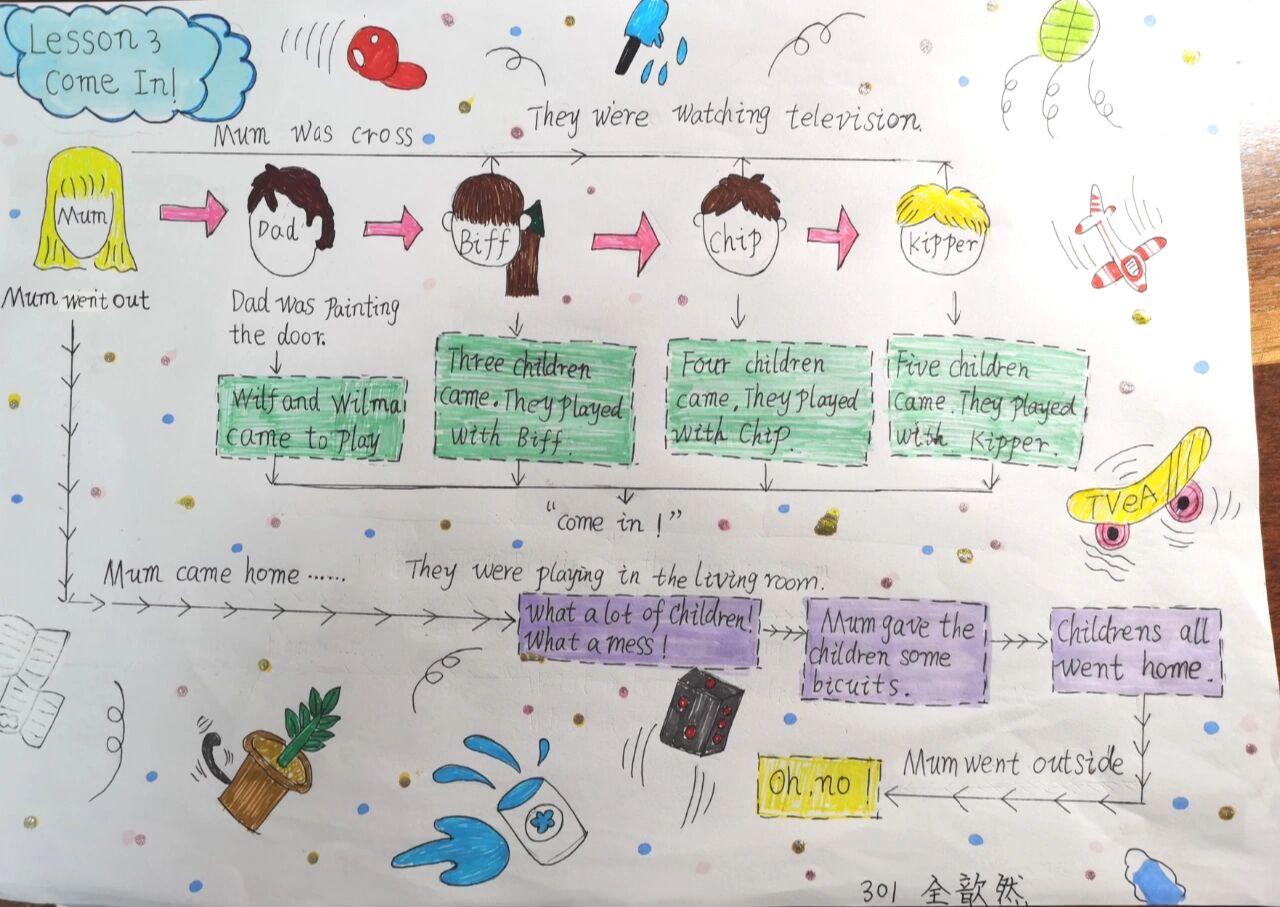 Lesson 3
Come In!
Mum was cross
They were watching television.
Mum
Dad
Biff
Chip
Kipper
Mum went out
Dad was Painting
the door.
Wilf and Wilma
came to play
Three children
came. They played
with Biff.
Four children
came. They played
with Chip.
Five children
came. They played
with Kipper.
"come in!"
TVeA
Mum came home ......
They were playing in the living room.
What a lot of children!
What a mess!
Mum gave the
children some
bicuits.
Childrens all
went home.
Mum went outside
Oh, no!
301 全歆然